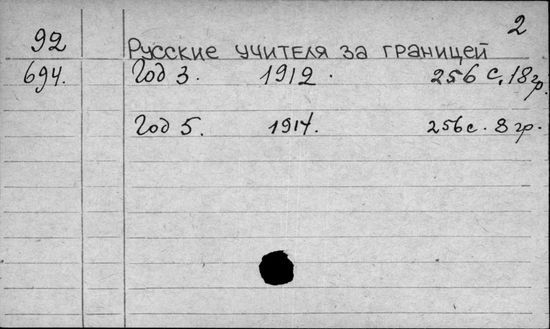 2
92 Русские учителя за границей
694. Год 3. 1912. 256 с, 18 гр.
Год 5. 1914. 256 с. 8 гр.